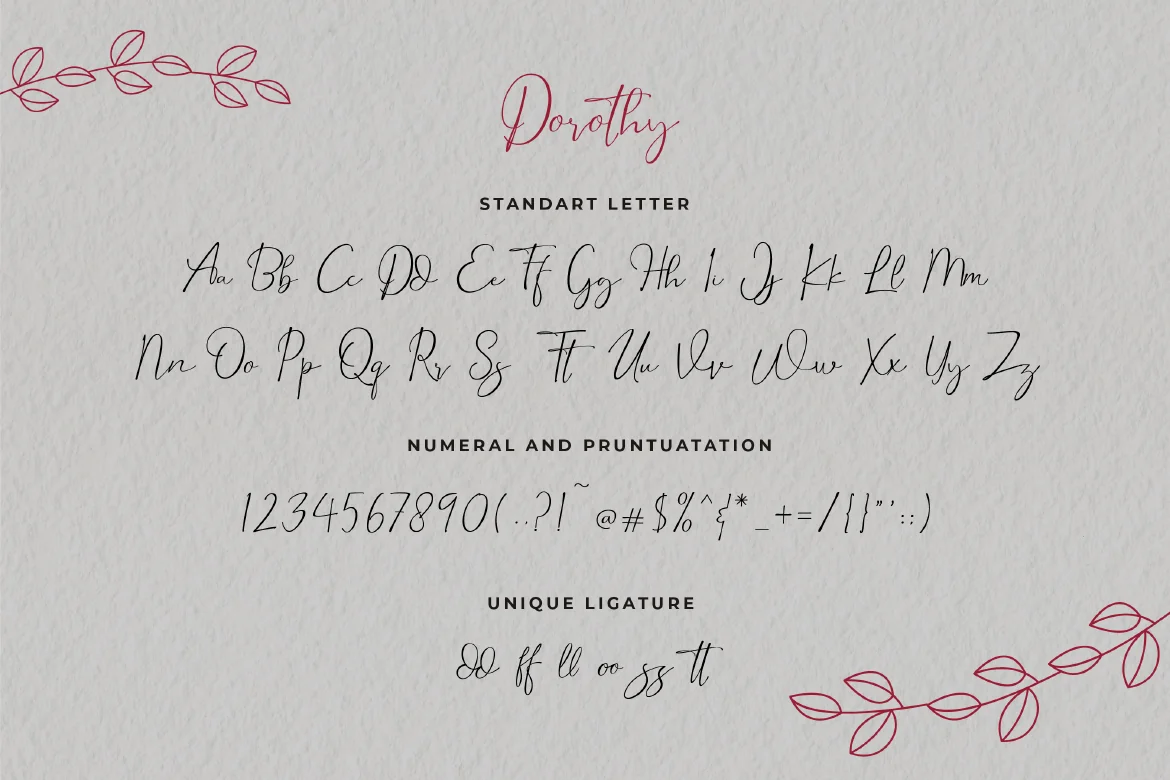 Dorothy
STANDART LETTER
Aa Bb Cc Dd Ee Ff Gg Hh Ii Jj Kk Ll Mm
Nn Oo Pp Qq Rr Ss Tt Uu Vv Ww Xx Yy Zz
NUMERAL AND PRUNTUATATION
1234567890(..?!~@#$%^&*_+=/{}"'::)
UNIQUE LIGATURE
dd ff ll oo ss tt